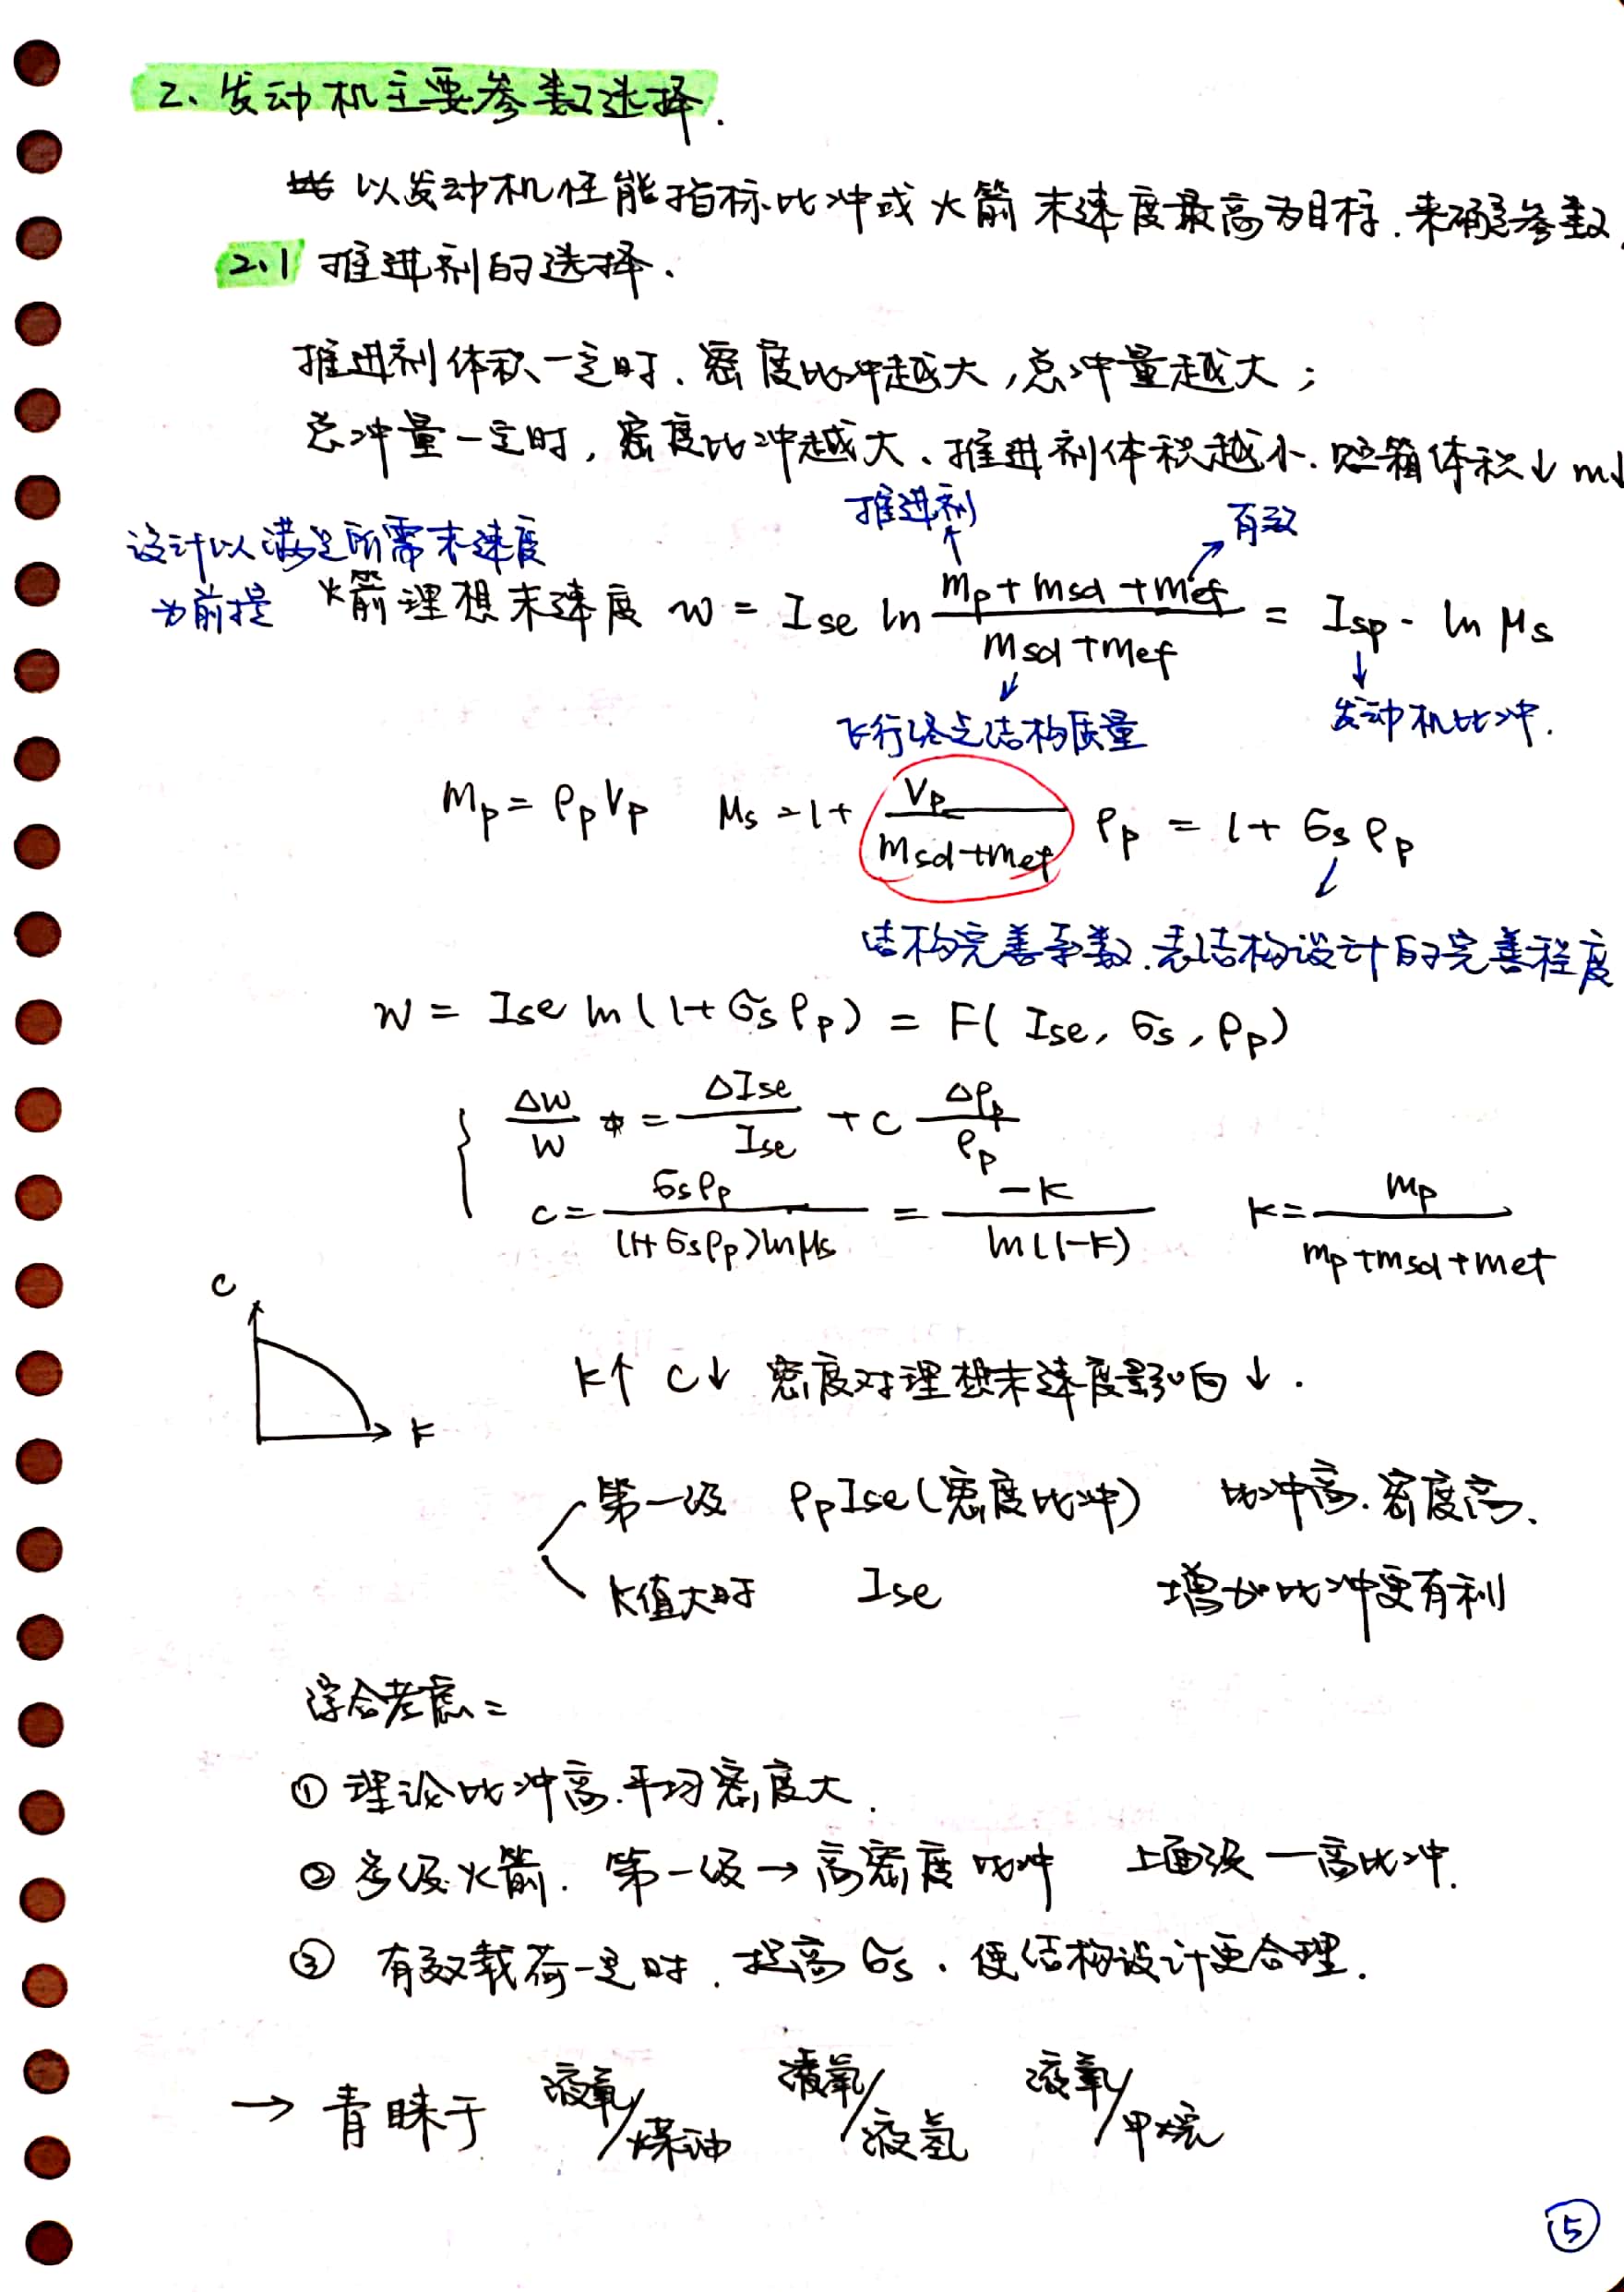 2、发动机主要参数选择.
以发动机性能指标比冲或火箭末速度最高为目标.来确定参数.
2.1 推进剂的选择、
推进剂体积一定时、密度比冲越大,总冲量越大;
总冲量一定时,密度比冲越大、推进剂体积越小.贮箱体积↓ m↓
推进剂 有效
设计以满足所需末速度
为前提 火箭理想末速度 w = Ise ln (mp+msd+mef)/(msd+mef) = Isp · ln μs
飞行终点结构质量 发动机比冲.
mp = ρpVp μs = 1 + Vp/(msd+mef) ρp = 1 + σsρp
结构完善系数.表结构设计的完善程度
w = Ise ln(1+σsρp) = F(Ise, σs, ρp)
Δw/w = ΔIse/Ise + c Δρp/ρp
c = σsρp/((1+σsρp)lnμs) = -k/ln(1-k) k = mp/(mp+msd+met)
c
k↑ c↓ 密度对理想末速度影响↓.
k
第一级 ρpIse(密度比冲) 比冲高.密度高.
k值大时 Ise 增加比冲更有利
综合考虑:
① 理论比冲高.平均密度大.
② 多级火箭.第一级→高密度比冲 上面级—高比冲.
③ 有效载荷一定时.提高σs.使结构设计更合理.
→ 青睐于 液氧/煤油 液氧/液氢 液氧/甲烷
⑤